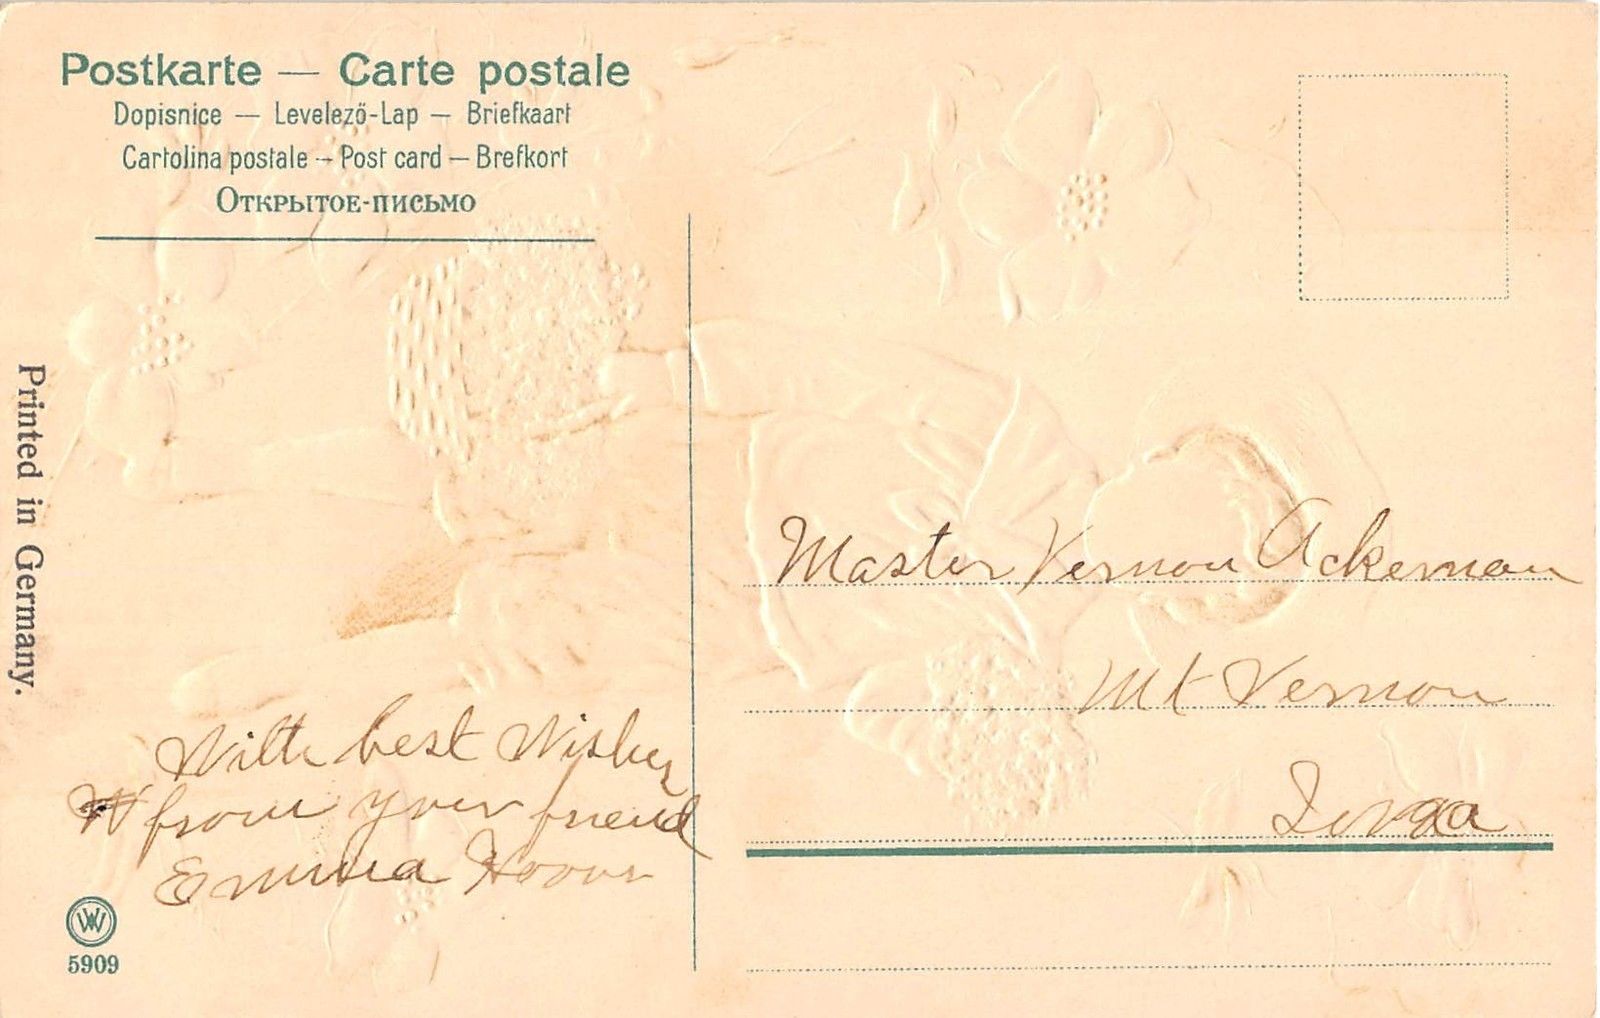 Postkarte — Carte postale
Dopisnice — Levelező-Lap — Briefkaart
Cartolina postale — Post card — Brefkort
Открытое-письмо
Printed in Germany.
Master Vernon Ackerman
Mt Vernon
Iowa
With best Wishes
from your friend
Emma Hoover
W
5909